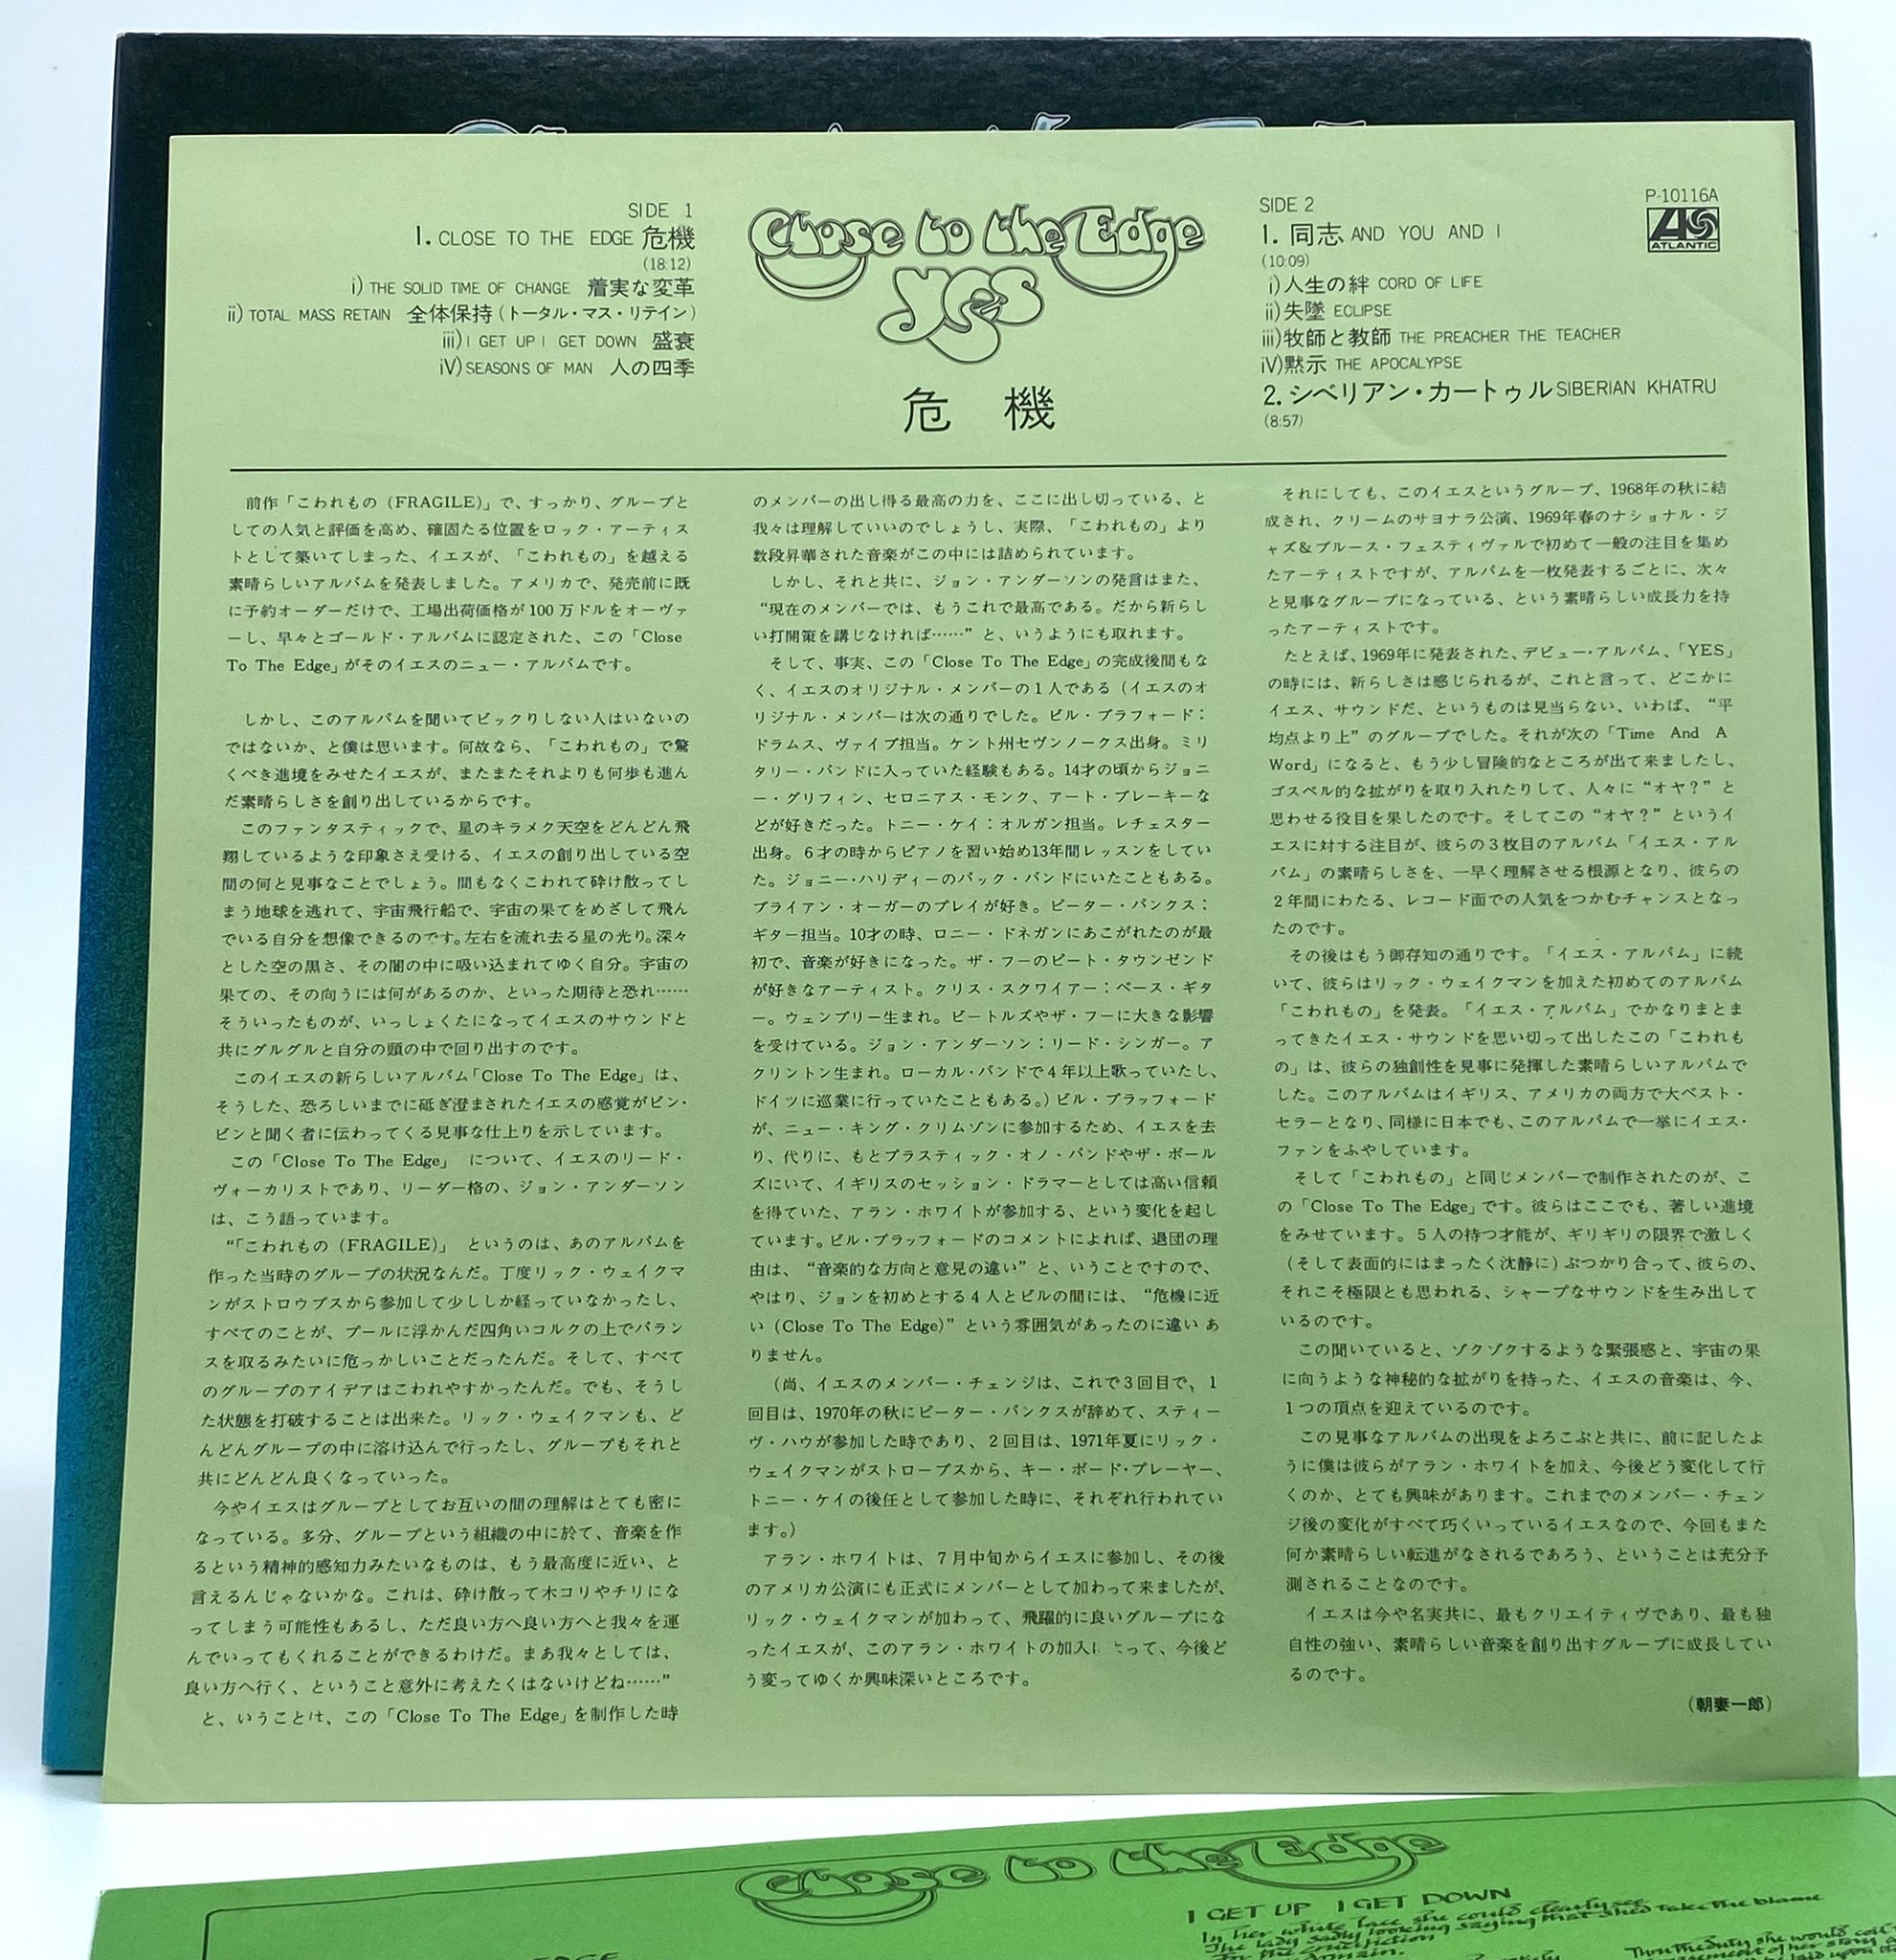 SIDE 1
1. CLOSE TO THE EDGE 危機
(18:12)
i) THE SOLID TIME OF CHANGE 着実な変革
ii) TOTAL MASS RETAIN 全体保持(トータル・マス・リテイン)
iii) I GET UP I GET DOWN 盛衰
iV) SEASONS OF MAN 人の四季
Close to the Edge
yes
危機
SIDE 2
1. 同志 AND YOU AND I
(10:09)
i)人生の絆 CORD OF LIFE
ii)失墜 ECLIPSE
iii)牧師と教師 THE PREACHER THE TEACHER
iV)黙示 THE APOCALYPSE
2. シベリアン・カートゥル SIBERIAN KHATRU
(8:57)
P-10116A
ATLANTIC
前作「こわれもの (FRAGILE)」で、すっかり、グループと
しての人気と評価を高め、確固たる位置をロック・アーティス
トとして築いてしまった、イエスが、「こわれもの」を越える
素晴らしいアルバムを発表しました。アメリカで、発売前に既
に予約オーダーだけで、工場出荷価格が100万ドルをオーヴァ
ーし、早々とゴールド・アルバムに認定された、この「Close
To The Edge」がそのイエスのニュー・アルバムです。
しかし、このアルバムを聞いてビックりしない人はいないの
ではないか、と僕は思います。何故なら、「こわれもの」で驚
くべき進境をみせたイエスが、またまたそれよりも何歩も進ん
だ素晴らしさを創り出しているからです。
このファンタスティックで、星のキラメク天空をどんどん飛
翔しているような印象さえ受ける、イエスの創り出している空
間の何と見事なことでしょう。間もなくこわれて砕け散ってし
まう地球を逃れて、宇宙飛行船で、宇宙の果てをめざして飛ん
でいる自分を想像できるのです。左右を流れ去る星の光り。深々
とした空の黒さ、その闇の中に吸い込まれてゆく自分。宇宙の
果ての、その向うには何があるのか、といった期待と恐れ……
そういったものが、いっしょくたになってイエスのサウンドと
共にグルグルと自分の頭の中で回り出すのです。
このイエスの新らしいアルバム「Close To The Edge」は、
そうした、恐ろしいまでに砥ぎ澄まされたイエスの感覚がビン・
ビンと聞く者に伝わってくる見事な仕上りを示しています。
この「Close To The Edge」 について、イエスのリード・
ヴォーカリストであり、リーダー格の、ジョン・アンダーソン
は、こう語っています。
“「こわれもの (FRAGILE)」 というのは、あのアルバムを
作った当時のグループの状況なんだ。丁度リック・ウェイクマ
ンがストロウブスから参加して少ししか経っていなかったし、
すべてのことが、プールに浮かんだ四角いコルクの上でバラン
スを取るみたいに危っかしいことだったんだ。そして、すべて
のグループのアイデアはこわれやすかったんだ。でも、そうし
た状態を打破することは出来た。リック・ウェイクマンも、ど
んどんグループの中に溶け込んで行ったし、グループもそれと
共にどんどん良くなっていった。
今やイエスはグループとしてお互いの間の理解はとても密に
なっている。多分、グループという組織の中に於て、音楽を作
るという精神的感知力みたいなものは、もう最高度に近い、と
言えるんじゃないかな。これは、砕け散って木コリやチリにな
ってしまう可能性もあるし、ただ良い方へ良い方へと我々を運
んでいってもくれることができるわけだ。まあ我々としては、
良い方へ行く、ということ意外に考えたくはないけどね……”
と、いうことは、この「Close To The Edge」を制作した時
のメンバーの出し得る最高の力を、ここに出し切っている、と
我々は理解していいのでしょうし、実際、「こわれもの」より
数段昇華された音楽がこの中には詰められています。
しかし、それと共に、ジョン・アンダーソンの発言はまた、
“現在のメンバーでは、もうこれで最高である。だから新らし
い打開策を講じなければ……”と、いうようにも取れます。
そして、事実、この「Close To The Edge」の完成後間もな
く、イエスのオリジナル・メンバーの1人である(イエスのオ
リジナル・メンバーは次の通りでした。ビル・ブラフォード:
ドラムス、ヴァイブ担当。ケント州セヴンノークス出身。ミリ
タリー・バンドに入っていた経験もある。14才の頃からジョニ
ー・グリフィン、セロニアス・モンク、アート・ブレーキーな
どが好きだった。トニー・ケイ:オルガン担当。レチェスター
出身。6才の時からピアノを習い始め13年間レッスンをしてい
た。ジョニー・ハリディーのバック・バンドにいたこともある。
ブライアン・オーガーのプレイが好き。ピーター・バンクス:
ギター担当。10才の時、ロニー・ドネガンにあこがれたのが最
初で、音楽が好きになった。ザ・フーのピート・タウンゼンド
が好きなアーティスト。クリス・スクワイアー:ベース・ギタ
ー。ウェンブリー生まれ。ビートルズやザ・フーに大きな影響
を受けている。ジョン・アンダーソン:リード・シンガー。ア
クリントン生まれ。ローカル・バンドで4年以上歌っていたし、
ドイツに巡業に行っていたこともある。)ビル・ブラッフォード
が、ニュー・キング・クリムゾンに参加するため、イエスを去
り、代りに、もとプラスティック・オノ・バンドやザ・ボール
ズにいて、イギリスのセッション・ドラマーとしては高い信頼
を得ていた、アラン・ホワイトが参加する、という変化を起し
ています。ビル・ブラッフォードのコメントによれば、退団の理
由は、“音楽的な方向と意見の違い”と、いうことですので、
やはり、ジョンを初めとする4人とビルの間には、“危機に近
い (Close To The Edge)”という雰囲気があったのに違いあ
りません。
(尚、イエスのメンバー・チェンジは、これで3回目で、1
回目は、1970年の秋にピーター・バンクスが辞めて、スティー
ヴ・ハウが参加した時であり、2回目は、1971年夏にリック・
ウェイクマンがストローブスから、キー・ボード・プレーヤー、
トニー・ケイの後任として参加した時に、それぞれ行われてい
ます。)
アラン・ホワイトは、7月中旬からイエスに参加し、その後
のアメリカ公演にも正式にメンバーとして加わって来ましたが、
リック・ウェイクマンが加わって、飛躍的に良いグループにな
ったイエスが、このアラン・ホワイトの加入によって、今後ど
う変ってゆくか興味深いところです。
それにしても、このイエスというグループ、1968年の秋に結
成され、クリームのサヨナラ公演、1969年春のナショナル・ジ
ャズ&ブルース・フェスティヴァルで初めて一般の注目を集め
たアーティストですが、アルバムを一枚発表するごとに、次々
と見事なグループになっている、という素晴らしい成長力を持
ったアーティストです。
たとえば、1969年に発表された、デビュー・アルバム、「YES」
の時には、新らしさは感じられるが、これと言って、どこかに
イエス、サウンドだ、というものは見当らない、いわば、“平
均点より上”のグループでした。それが次の「Time And A
Word」になると、もう少し冒険的なところが出て来ましたし、
ゴスペル的な拡がりを取り入れたりして、人々に“オヤ?”と
思わせる役目を果したのです。そしてこの“オヤ?”というイ
エスに対する注目が、彼らの3枚目のアルバム「イエス・アル
バム」の素晴らしさを、一早く理解させる根源となり、彼らの
2年間にわたる、レコード面での人気をつかむチャンスとなっ
たのです。
その後はもう御存知の通りです。「イエス・アルバム」に続
いて、彼らはリック・ウェイクマンを加えた初めてのアルバム
「こわれもの」を発表。「イエス・アルバム」でかなりまとま
ってきたイエス・サウンドを思い切って出したこの「こわれも
の」は、彼らの独創性を見事に発揮した素晴らしいアルバムで
した。このアルバムはイギリス、アメリカの両方で大ベスト・
セラーとなり、同様に日本でも、このアルバムで一挙にイエス・
ファンをふやしています。
そして「こわれもの」と同じメンバーで制作されたのが、こ
の「Close To The Edge」です。彼らはここでも、著しい進境
をみせています。5人の持つ才能が、ギリギリの限界で激しく
(そして表面的にはまったく沈静に)ぶつかり合って、彼らの、
それこそ極限とも思われる、シャープなサウンドを生み出して
いるのです。
この聞いていると、ゾクゾクするような緊張感と、宇宙の果
に向うような神秘的な拡がりを持った、イエスの音楽は、今、
1つの頂点を迎えているのです。
この見事なアルバムの出現をよろこぶと共に、前に記したよ
うに僕は彼らがアラン・ホワイトを加え、今後どう変化して行
くのか、とても興味があります。これまでのメンバー・チェン
ジ後の変化がすべて巧くいっているイエスなので、今回もまた
何か素晴らしい転進がなされるであろう、ということは充分予
測されることなのです。
イエスは今や名実共に、最もクリエイティヴであり、最も独
自性の強い、素晴らしい音楽を創り出すグループに成長してい
るのです。
(朝妻一郎)
Close to the Edge
I GET UP I GET DOWN
In her white lace she could clearly see
The lady sadly looking saying that shed take the blame
For the crucifixion
domain.
EDGE